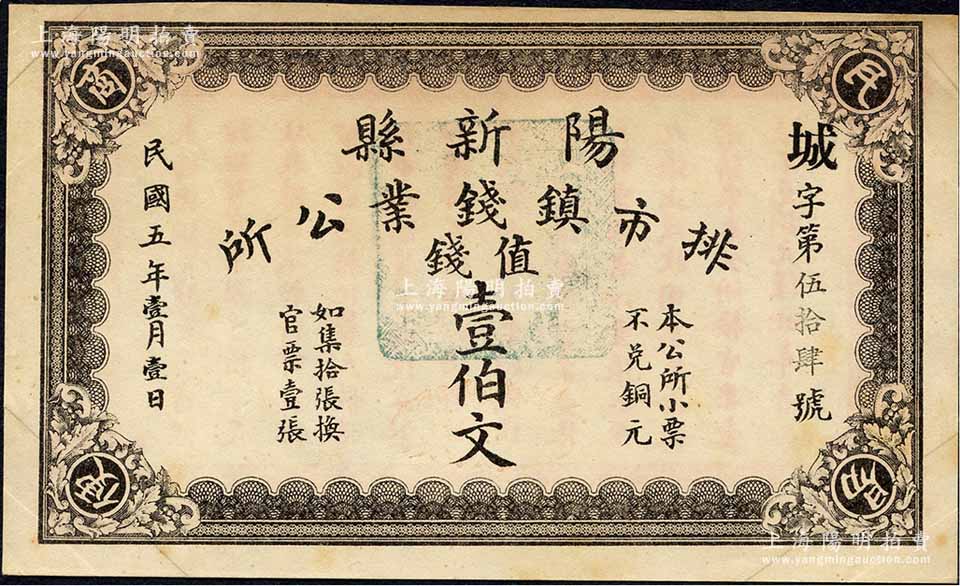 陽新縣
排市鎮錢業公所
值錢
壹伯文
城字第伍拾肆號
本公所小票
不兌銅元
如集拾張換
官票壹張
民國五年壹月壹日
民
商
便
上海陽明拍賣
www.yangmingauction.com
上海陽明拍賣
www.yangmingauction.com
上海陽明拍賣
www.yangmingauction.com